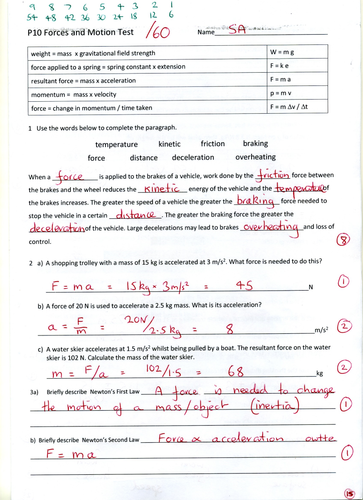 9 8 7 6 5 4 3 2 1
54 48 42 36 30 24 18 12 6
P10 Forces and Motion Test /60 Name SA
weight = mass x gravitational field strength W = m g
force applied to a spring = spring constant x extension F = k e
resultant force = mass x acceleration F = m a
momentum = mass x velocity p = m v
force = change in momentum / time taken F = m Δv / Δt
1 Use the words below to complete the paragraph.
temperature kinetic friction braking
force distance deceleration overheating
When a force is applied to the brakes of a vehicle, work done by the friction force between
the brakes and the wheel reduces the kinetic energy of the vehicle and the temperature of
the brakes increases. The greater the speed of a vehicle the greater the braking force needed to
stop the vehicle in a certain distance. The greater the braking force the greater the
deceleration of the vehicle. Large decelerations may lead to brakes overheating and loss of
control. 8
2 a) A shopping trolley with a mass of 15 kg is accelerated at 3 m/s². What force is needed to do this?
F = ma = 15kg × 3m/s² = 45 N 1
b) A force of 20 N is used to accelerate a 2.5 kg mass. What is its acceleration?
a = F/m = 20N/2.5kg = 8 m/s² 2
c) A water skier accelerates at 1.5 m/s² whilst being pulled by a boat. The resultant force on the water
skier is 102 N. Calculate the mass of the water skier.
m = F/a = 102/1.5 = 68 kg 2
3a) Briefly describe Newton's First Law A force is needed to change
the motion of a mass/object (inertia) 1
b) Briefly describe Newton's Second Law Force ∝ acceleration owtte
F = ma 1
15